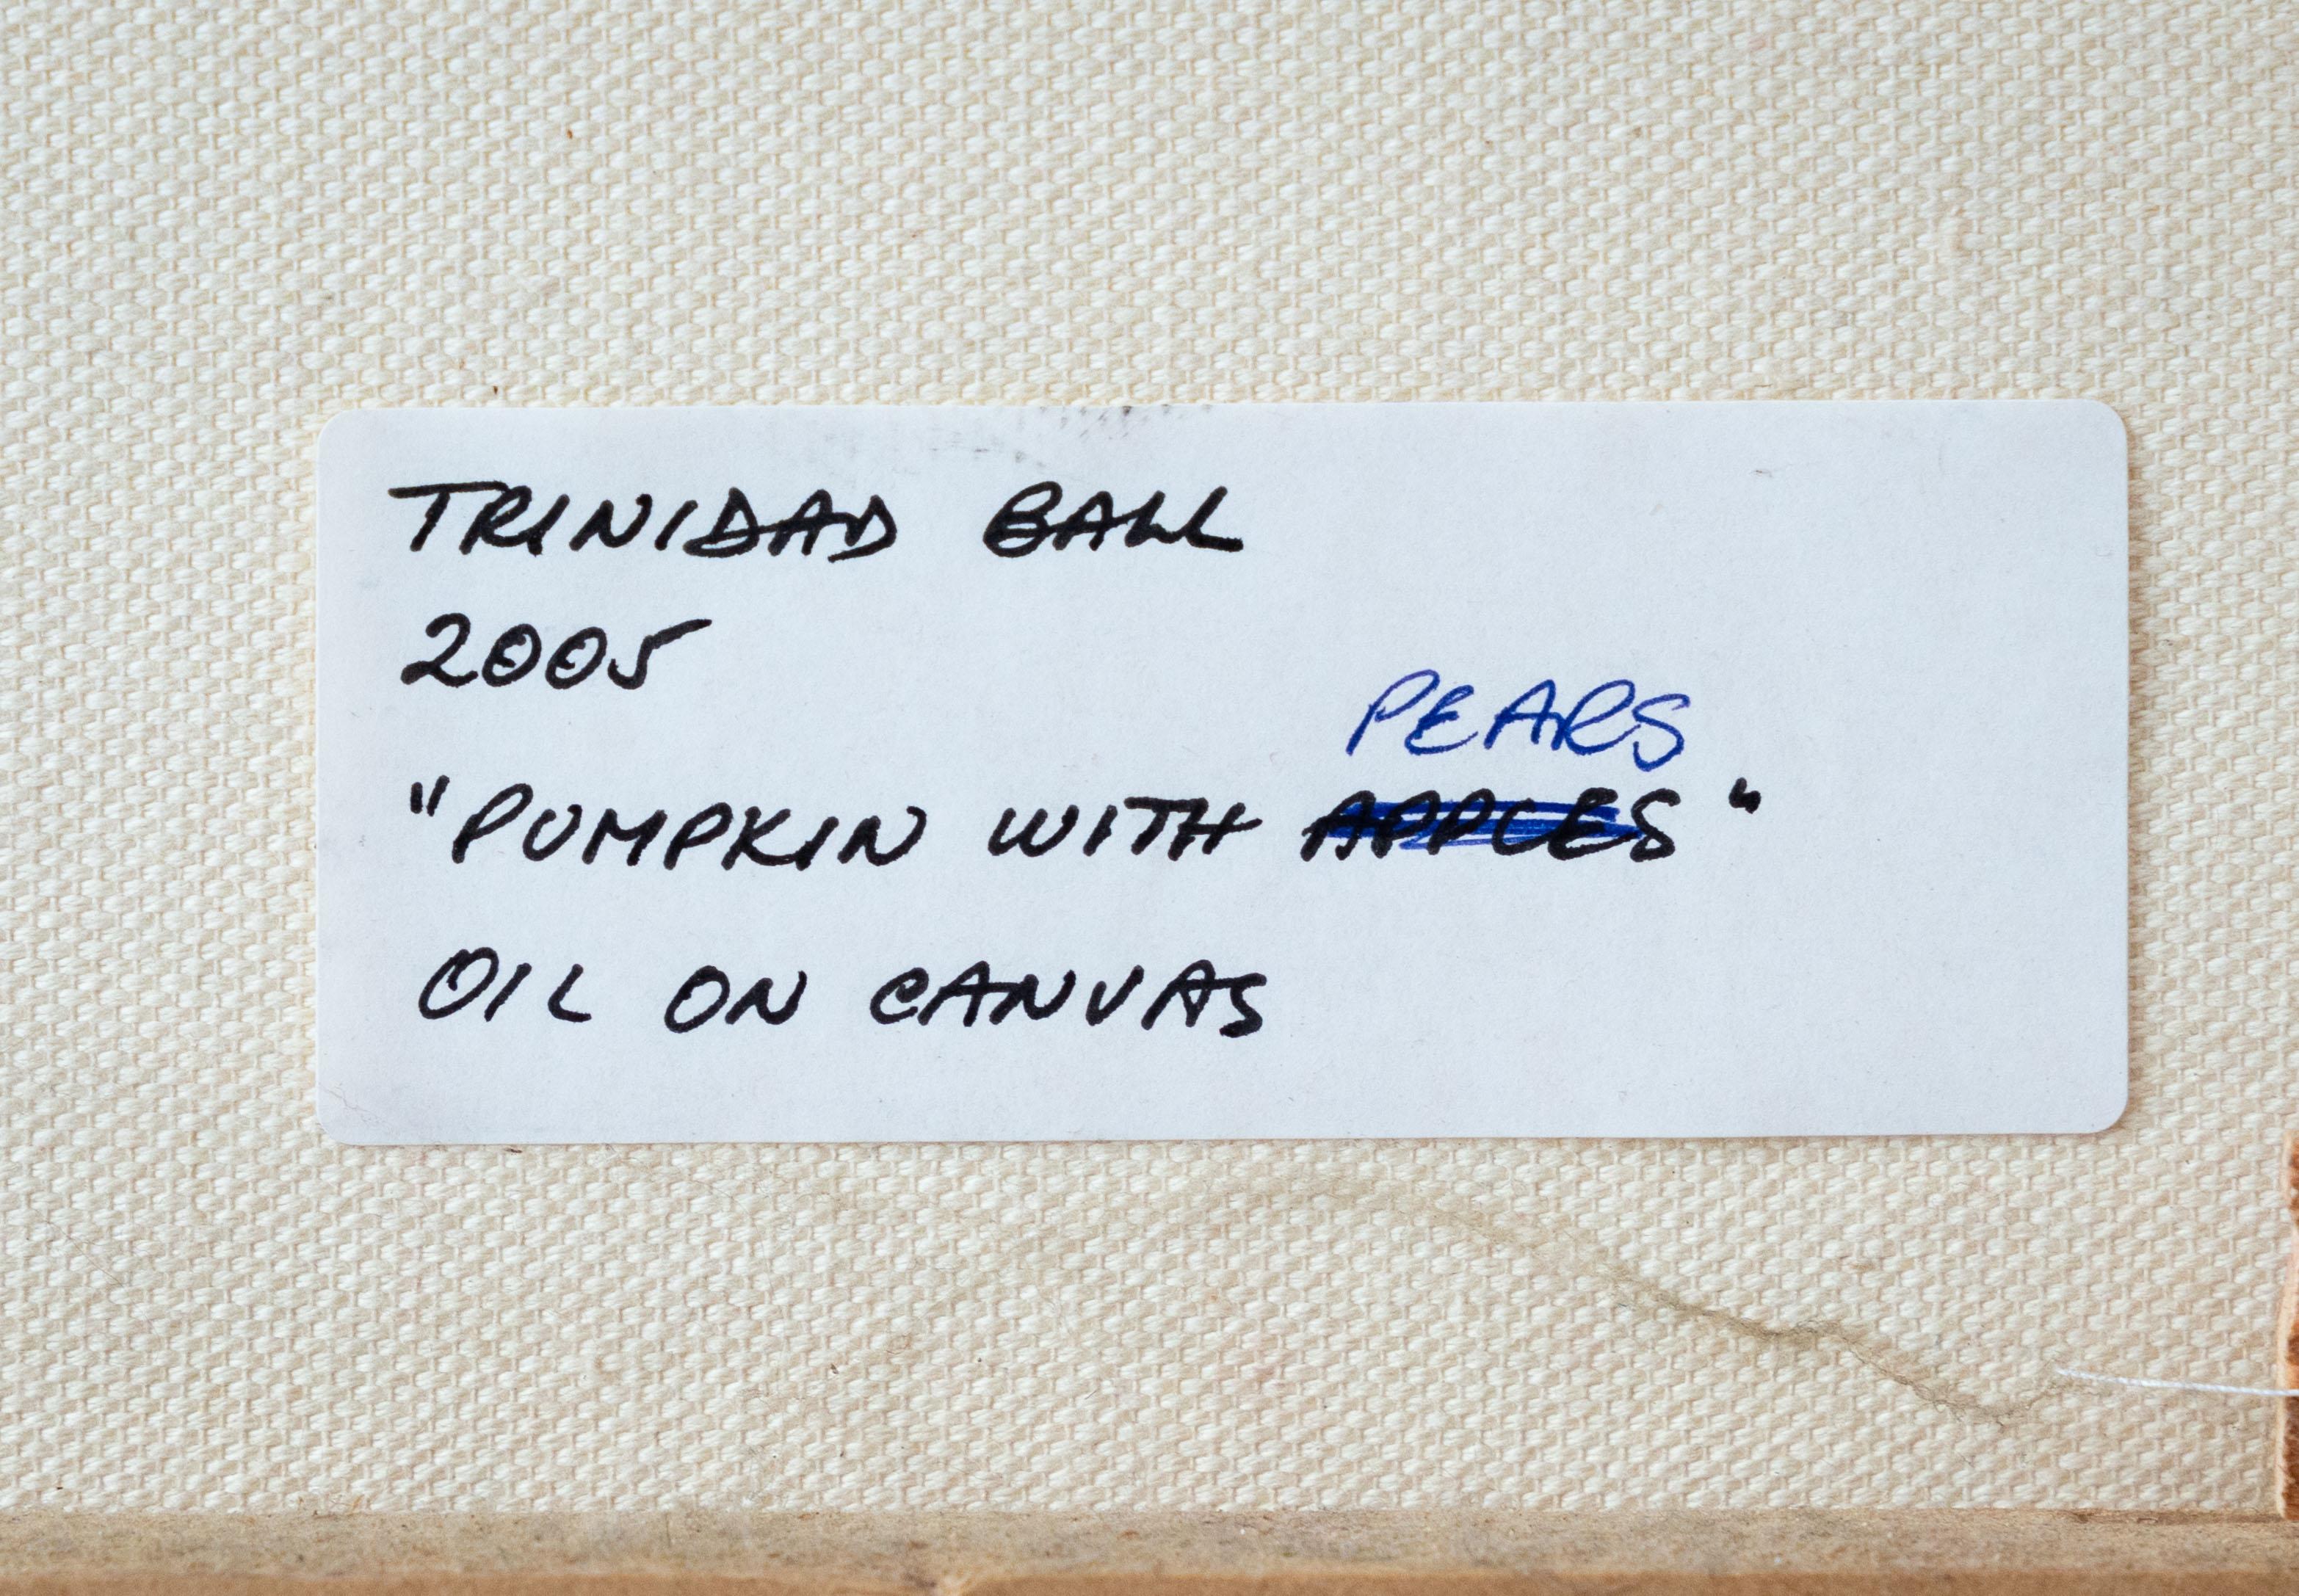 TRINIDAD BALL
2005
PEARS
"PUMPKIN WITH APPLES"
OIL ON CANVAS